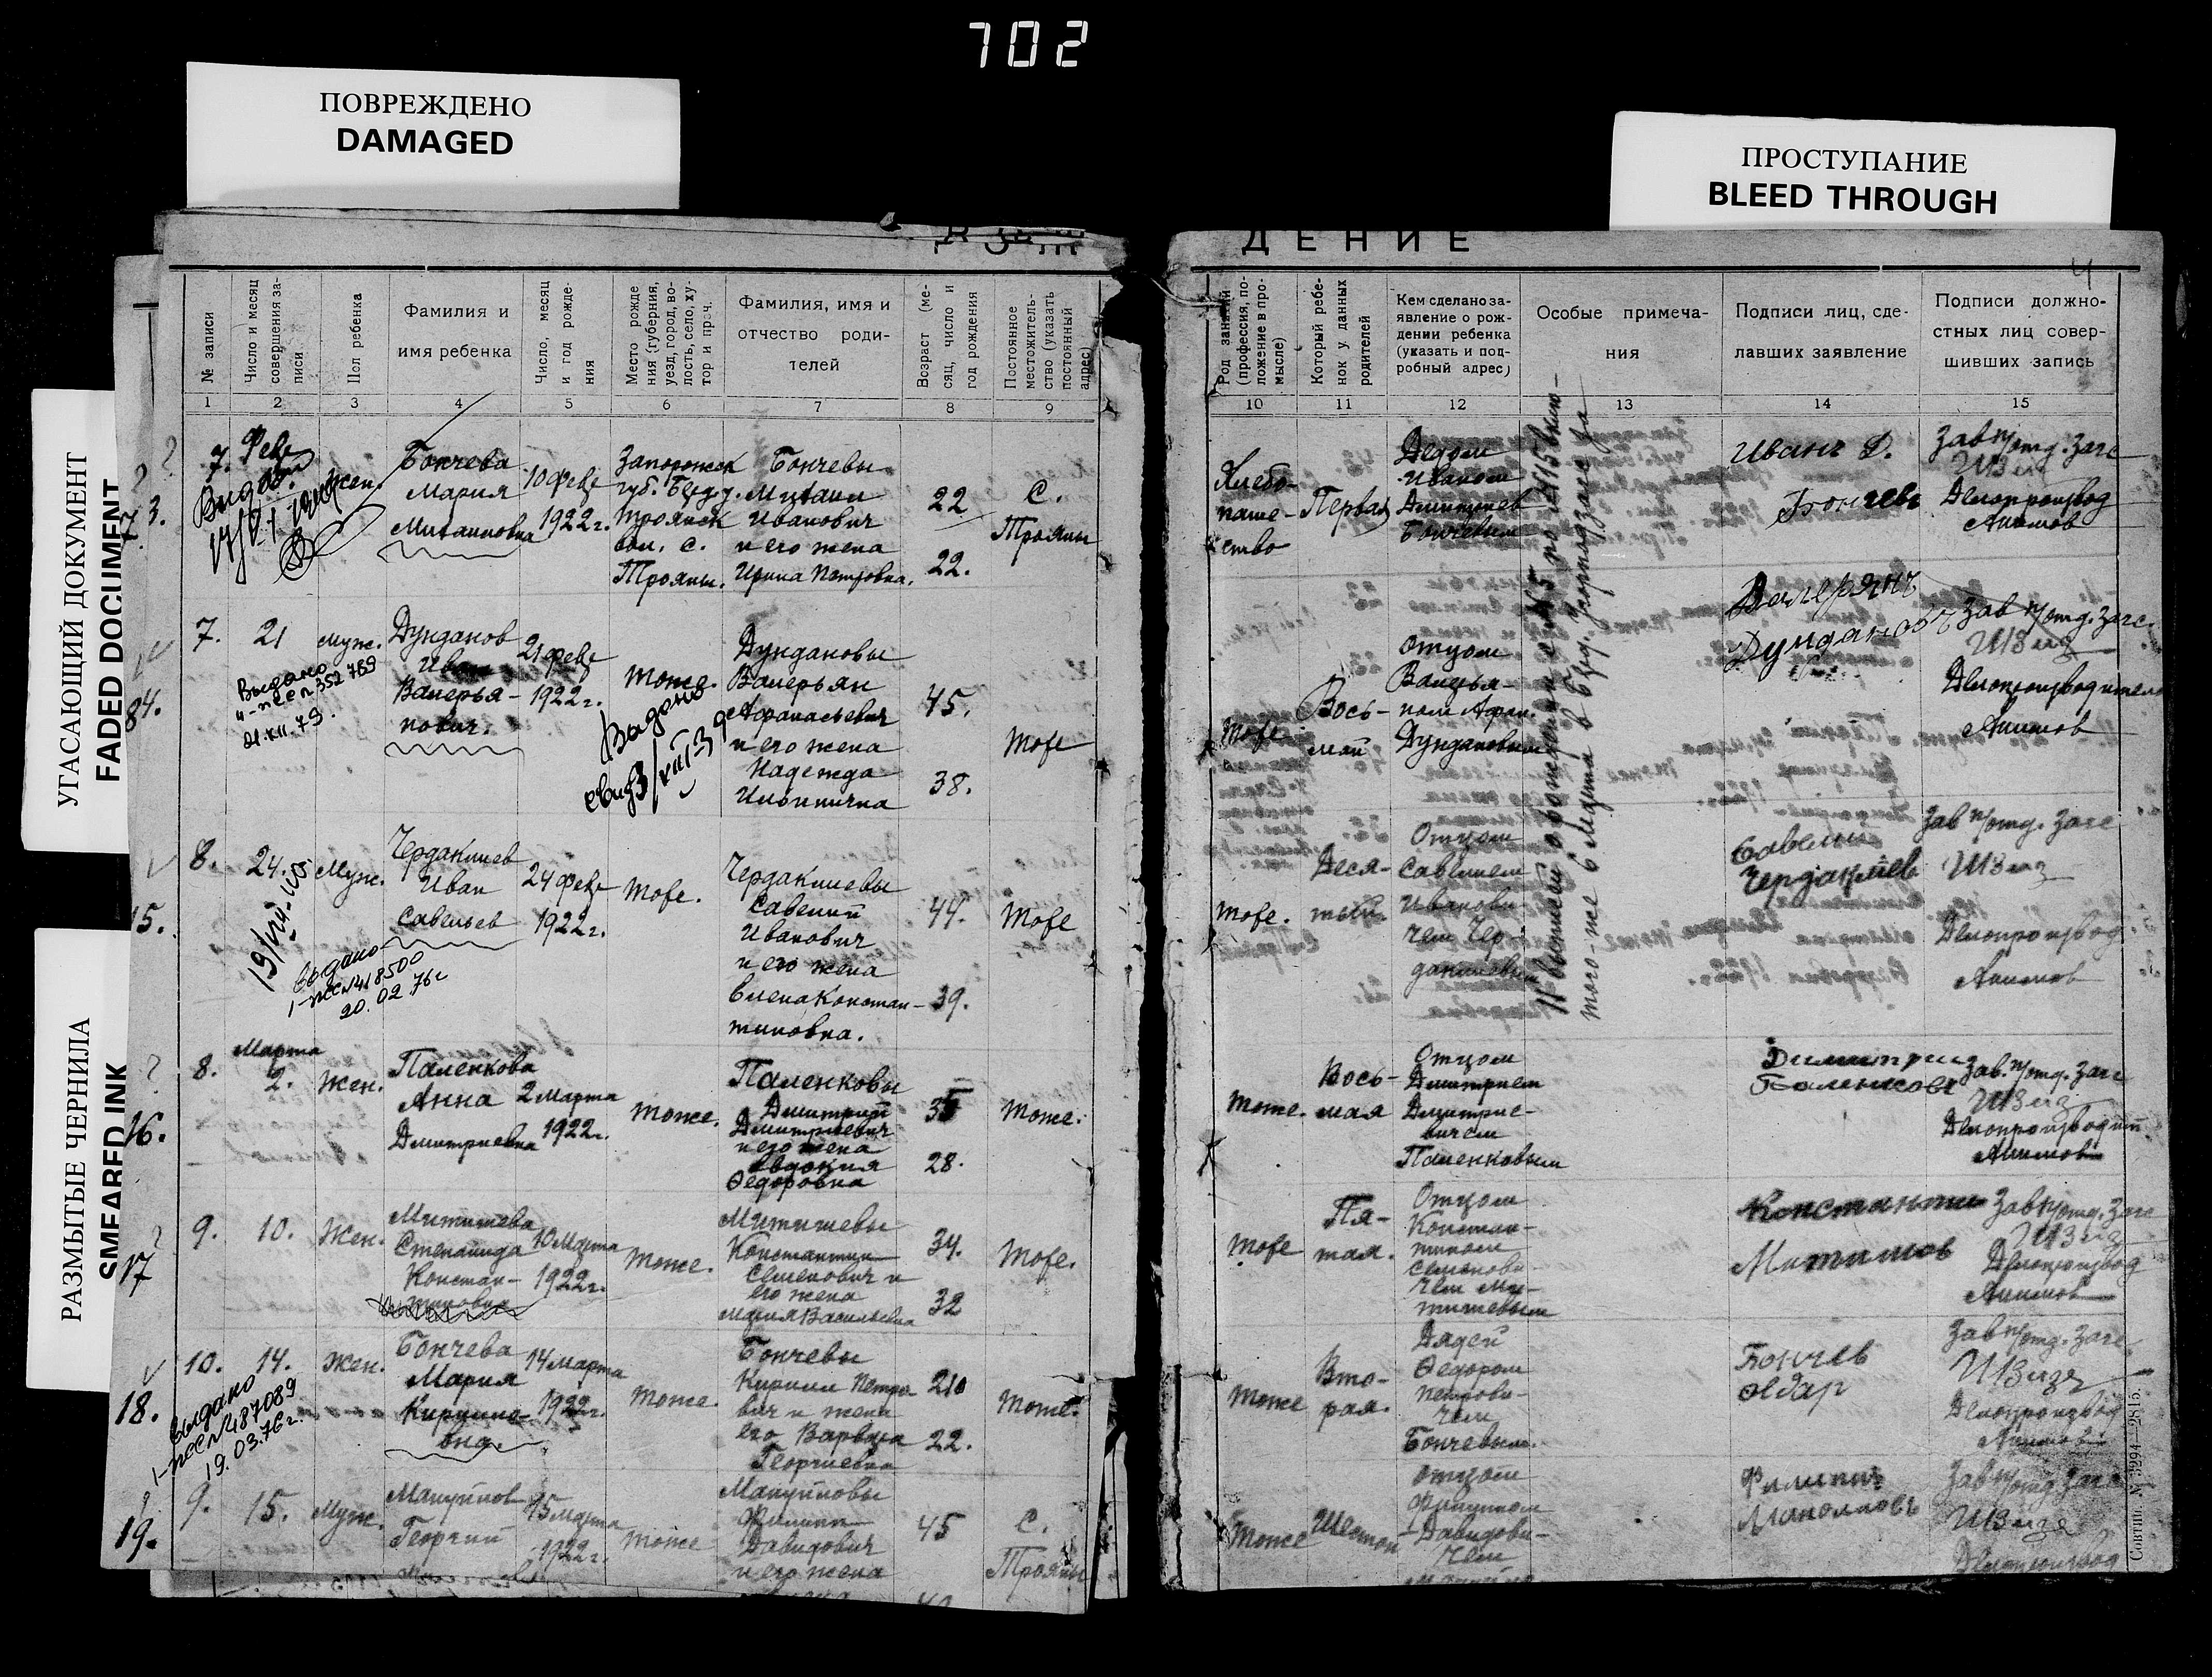 702
ПОВРЕЖДЕНО
DAMAGED
ПРОСТУПАНИЕ
BLEED THROUGH
УГАСАЮЩИЙ ДОКУМЕНТ
FADED DOCUMENT
РАЗМЫТЫЕ ЧЕРНИЛА
SMEARED INK
ДЕНИЕ
4
№ записи
Число и месяц
совершения за-
писи
Пол ребенка
Фамилия и
имя ребенка
Число, месяц
и год рожде-
ния
Место рожде
ния (губерния,
уезд, город, во-
лость, село, ху-
тор и проч.
Фамилия, имя и
отчество роди-
телей
Возраст (ме-
сяц, число и
год рождения
Постоянное
местожитель-
ство (указать
постоянный
адрес)
Род занятий
(профессия, по-
ложение в про-
мысле)
Который ребе-
нок у данных
родителей
Кем сделано за-
явление о рож-
дении ребенка
(указать и под-
робный адрес)
Особые примеча-
ния
Подписи лиц, сде-
лавших заявление
Подписи должно-
стных лиц совер-
шивших запись
1 2 3 4 5 6 7 8 9
10 11 12 13 14 15
7. Февр
3.
жен.
Бончева
Мария
Михаиловна
10 февр
1922 г.
Запорожск
губ. Берд. у.
Троянск
вол. с.
Трояны.
Бончевы
Михаил
Иванович
и его жена
Ирина Петровна.
22
22.
С.
Трояны
Хлебо-
паше-
ство
Первая
Дедом
Иваном
Дмитриев
Бончевым
Иванъ Д.
Бончевъ
Зав п/отд. Загс
Делопроизвод
7. 21 муж.
84.
Выдано
21 XII. 79.
Дунданов
Иван
Валерья-
нович.
21 февр
1922 г.
тоже.
Выдано
Дундановы
Валерьян
Афанасьевич
и его жена
Надежда
Ильинична
45.
38.
тоже
тоже
Вось-
мой
Отцом
Валерья-
ном Афан.
Дундановым
Валерянъ
Дундановъ
Зав п/отд. Загс.
Делопроизводитель
8. 24. Муж.
15.
выдано
1-ЖС№418500
20.02.76г
Чердаклиев
Иван
Савельев
24 февр
1922 г.
тоже.
Чердаклиевы
Савелий
Иванович
и его жена
Елена Констан-
тиновна.
44.
39.
тоже
тоже.
Деся-
тый.
Отцом
Савелием
Иванови-
чем Чер-
даклиевым
Савелий
Чердаклiев
Зав п/отд. Загс
Делопроизвод
Марта
8. 2. жен.
16.
Паленкова
Анна
Дмитриевна
2 марта
1922 г.
тоже.
Паленковы
Дмитрий
Дмитриевич
и его жена
Евдокия
Федоровна
35
28.
тоже.
тоже.
Вось-
мая
Отцом
Дмитрием
Дмитрие-
вичем
Паленковым
Димитрий
Паленковъ
Зав. п/отд. Загс
9. 10. Жен.
17
Митишева
Степанида
Констан-
тиновна
10 Марта
1922 г.
тоже.
Митишевы
Константин
Семенович и
его жена
Мария Васильевна
34.
32
тоже.
тоже
Пя-
тая.
Отцом
Констан-
тином
Семенови-
чем Ми-
тишевым
Митишов
Зав п/отд. Загс
Делопроизвод
10. 14. Жен.
18.
выдано
1-ЖС№487089
19.03.76г.
Бончева
Мария
Кирилло-
вна.
14 марта
1922 г.
тоже.
Бончевы
Кирилл Петро
вич и жена
его Варвара
Георгиевна
22.
тоже.
тоже
Вто-
рая.
Дядей
Федором
Петрови-
чем
Бончевым.
Бончев
Зав п/отд. Загс.
Делопроизвод
9. 15. Муж.
19.
Мануйлов
Георгий
15 марта
1922 г.
тоже
Мануйловы
Филипп
Давидович
и его жена
45
С.
Трояны
Тоже
Шестой
Отцом
Филиппом
Давидови-
чем
Филипъ
Маноиловъ
Зав п/отд Загс
Делопроизвод
Совтип. № 3294—2815.